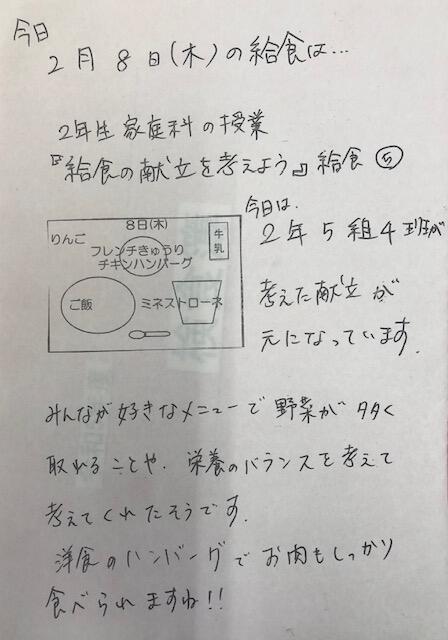 今日
2月8日(木)の給食は…
2年生家庭科の授業
『給食の献立を考えよう』給食⑤
8日(木)
りんご
牛乳
フレンチきゅうり
チキンハンバーグ
ご飯
ミネストローネ
今日は、
2年5組4班が
考えた献立が
元になっています。
みんなが好きなメニューで野菜が多く
取れることや、栄養のバランスを考えて
考えてくれたそうです。
洋食のハンバーグでお肉もしっかり
食べられますね!!